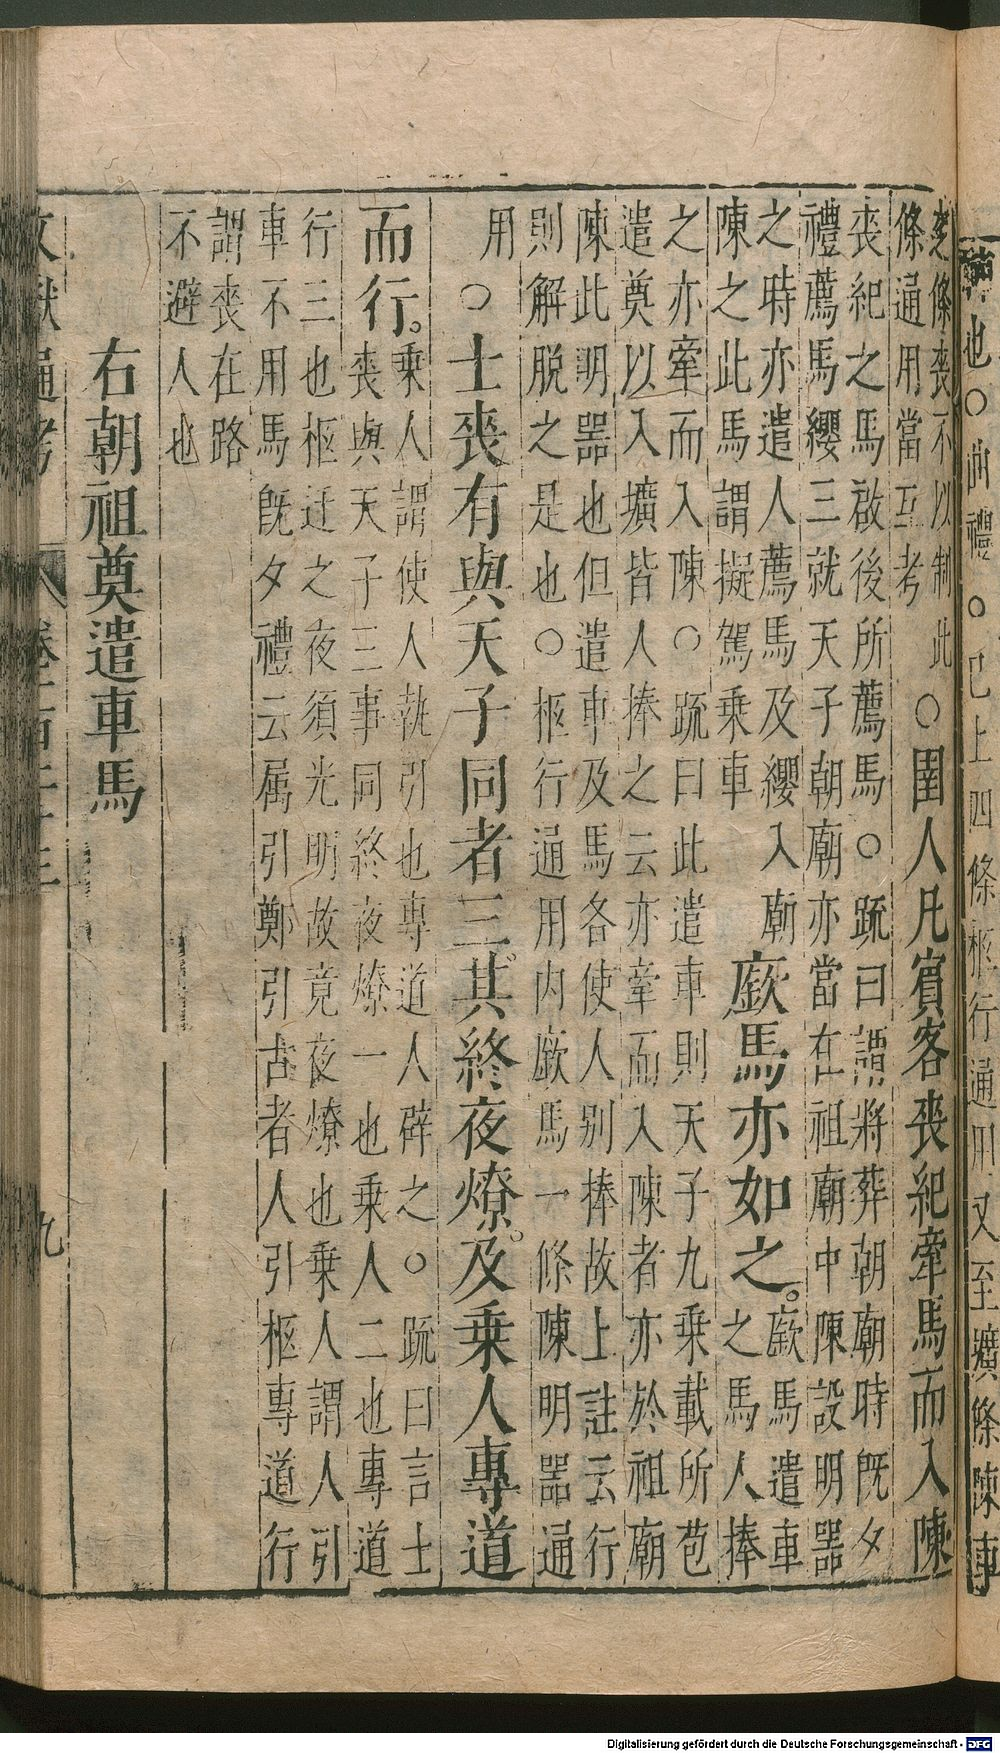 也○曲禮○已上四條柩行通用又至壙條陳車
條喪不以制此
條通用當互考
○圉人凡賓客喪紀牽馬而入陳
喪紀之馬啟後所薦馬○疏曰謂將葬朝廟時既夕
禮薦馬纓三就天子朝廟亦當在祖廟中陳設明器
之時亦遣人薦馬及纓入廟
陳之此馬謂擬駕乘車
廞馬亦如之。
廞馬遣車
之馬人捧
之亦牽而入陳○疏曰此遣車則天子九乘載所苞
遣奠以入壙皆人捧之云亦牽而入陳者亦於祖廟
陳此明器也但遣車及馬各使人别捧故上註云行
則解脫之是也○柩行通用內廞馬一條陳明器通
用
○士喪有與天子同者三。其終夜燎。及乘人專道
而行。
乘人謂使人執引也專道人辟之○疏曰言士
喪與天子三事同終夜燎一也乘人二也專道
行三也柩迁之夜須光明故竟夜燎也乘人謂人引
車不用馬既夕禮云属引鄭引古者人引柩專道行
謂喪在路
不避人也
右朝祖奠遣車馬
文獻通考
九
Digitalisierung gefördert durch die Deutsche Forschungsgemeinschaft - DFG